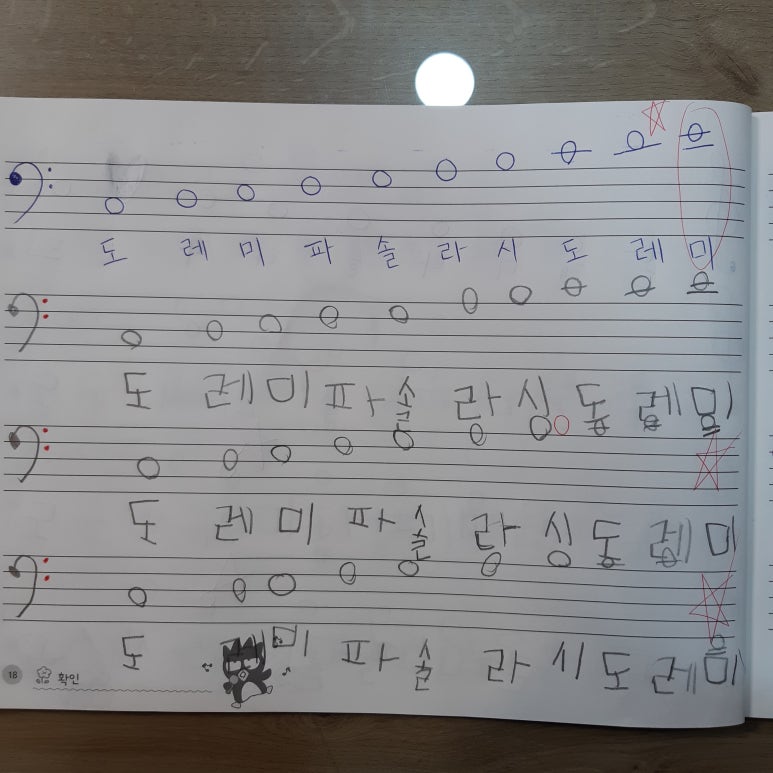 도 레 미 파 솔 라 시 도 레 미
도 레 미 파 솔 라 시 도 레 미
도 레 미 파 솔 라 시 도 레 미
도 레 미 파 솔 라 시 도 레 미
18 확인